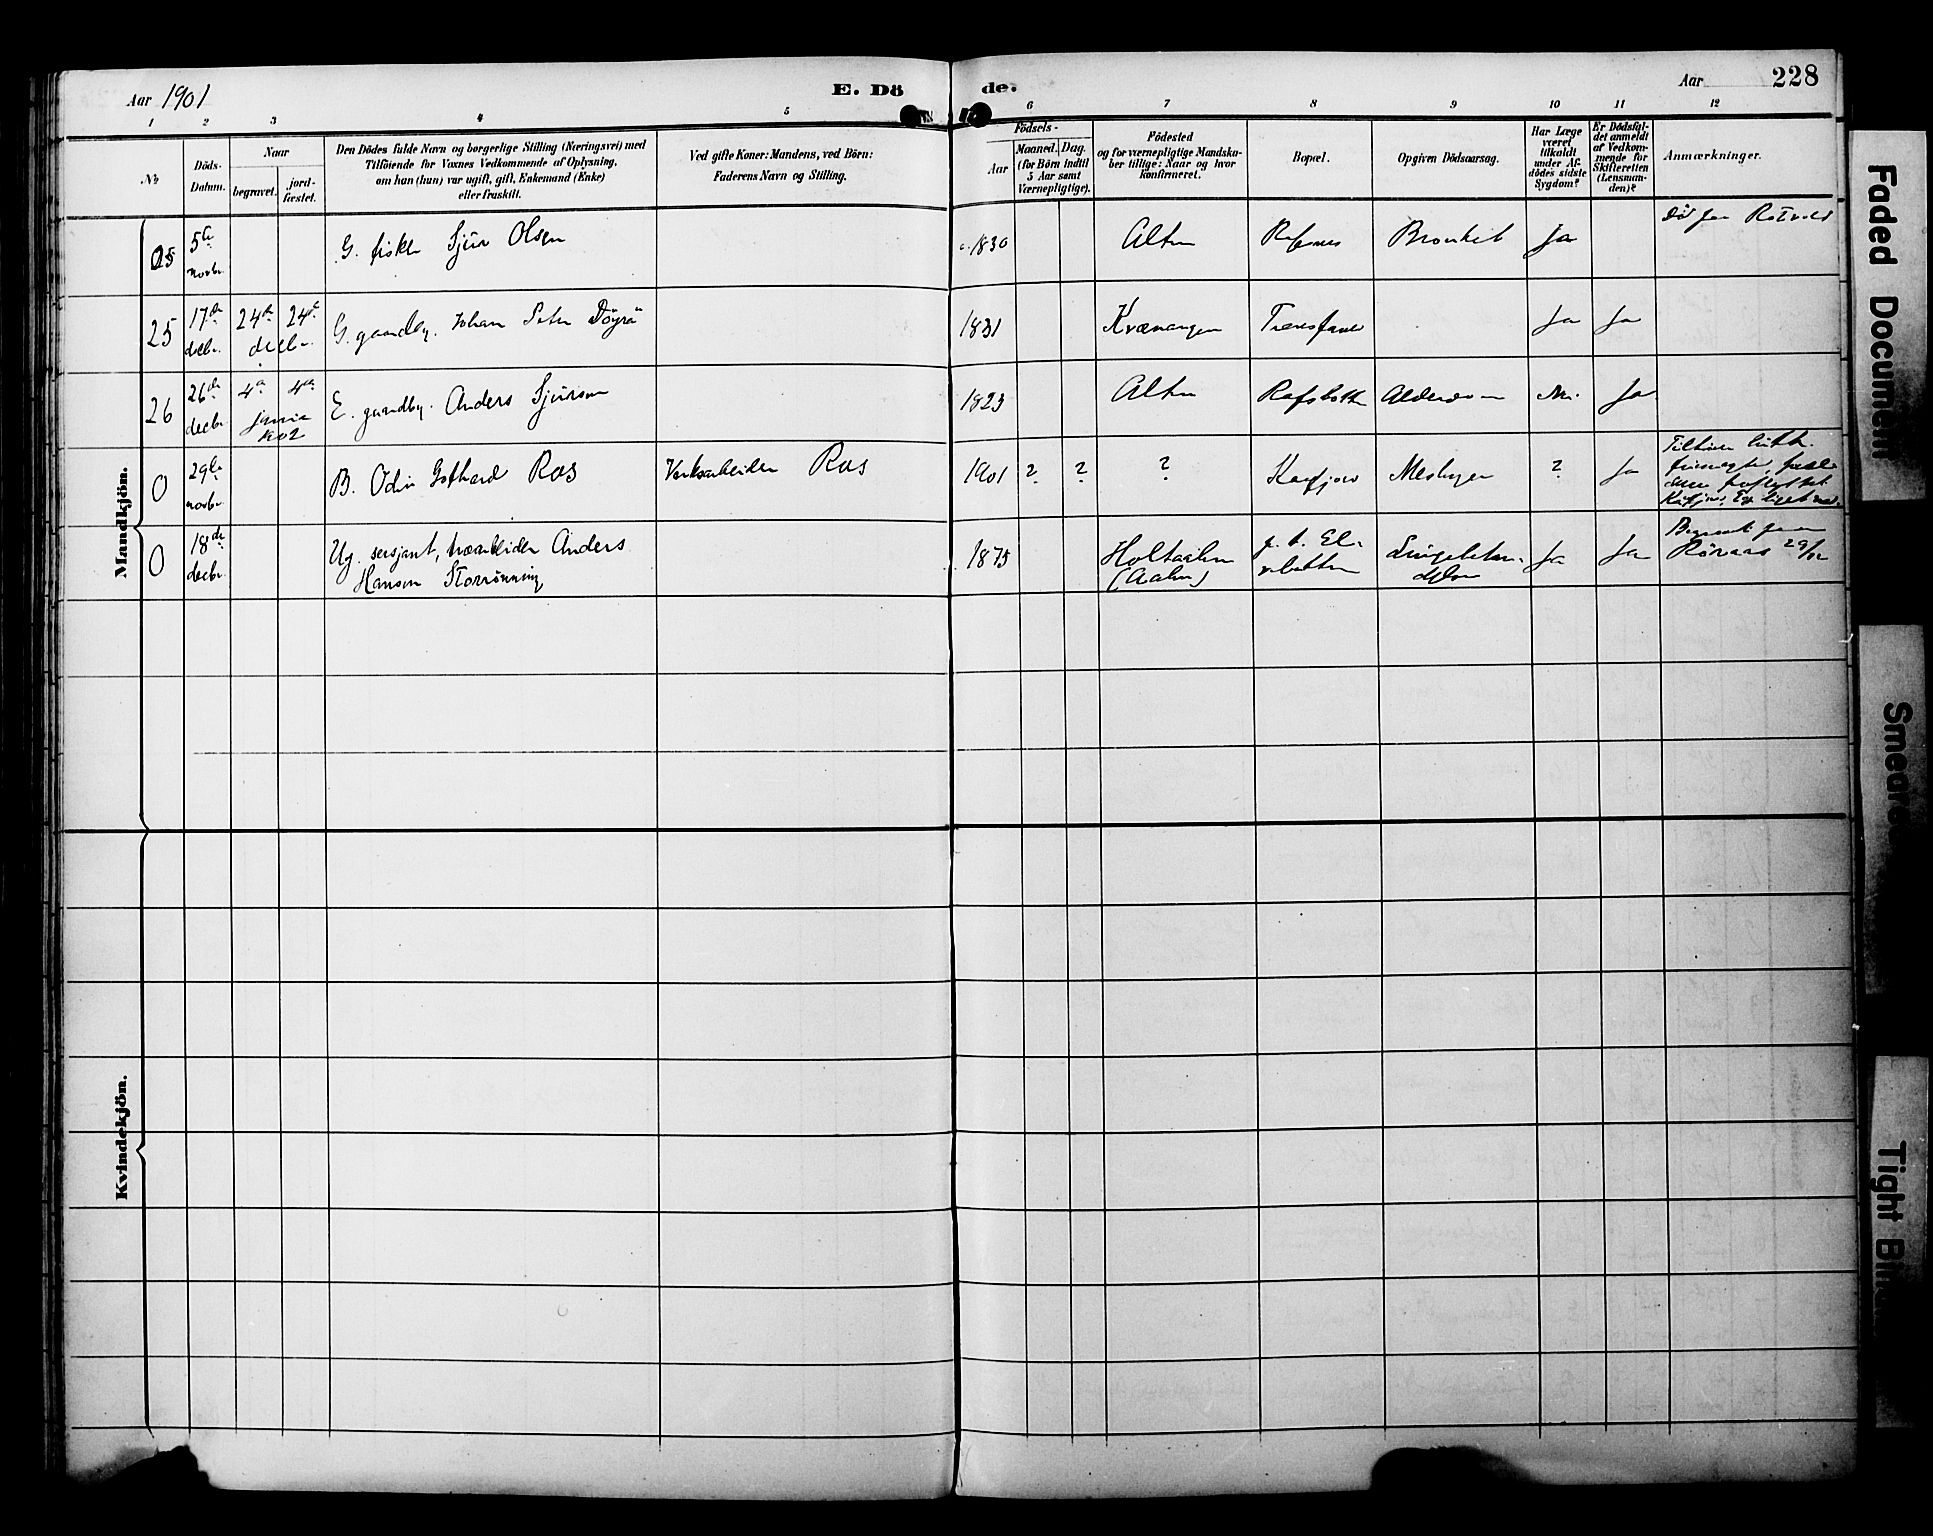 Aar 1901
E. Dö
de.
Aar
228
1 2 3 4 5 6 7 8 9 10 11 12
No
Döds-
Datum.
Naar
begravet.
jord-
fæstet.
Den Dödes fulde Navn og borgerlige Stilling (Næringsvei) med
Tilföiende for Voxnes Vedkommende af Oplysning,
om han (hun) var ugift, gift, Enkemand (Enke)
eller fraskilt.
Ved gifte Koner: Mandens, ved Börn:
Faderens Navn og Stilling.
Födsels-
Aar
Maaned.
Dag.
(for Börn indtil
5 Aar samt
Værnepligtige).
Födested
og for værnepligtige Mandska-
ber tillige: Naar og hvor
konfirmeret.
Bopæl.
Opgiven Dödsaarsag.
Har Læge
været
tilkaldt
under Af-
dödes sidste
Sygdom?
Er Dödsfal-
det anmeldt
af Vedkom-
mende for
Skifteretten
(Lensman-
den)?
Anmærkninger.
Mandkjön.
5te
novbr.
G. fisker Sjur Olsen
1830
Alten
Rafsnes
Bronkit
Ja
25
17de
decbr.
24de
24de
decbr.
G. gaardbr. Johan Peter
1831
Kvænangen
Ja
Ja
26
26de
decbr.
4de
4de
E. gaardbr. Anders Sjursen
1823
Alten
Rafsbotten
Alderdom
Nei
Ja
0
29de
novbr.
B. Odin Gothard Ras
Verksarbeider Ras
1901
?
?
?
Kaafjord
Meslinger
?
Ja
Kaafjord.
0
18de
decbr.
Ug. sersjant, Anders
Hansen Storrönning
1875
Holtaalen
(Aalen)
p. t. El-
vebakken
Ja
Ja
Röraas
Kvindekjön.
Faded Document
Smeared
Tight Bin